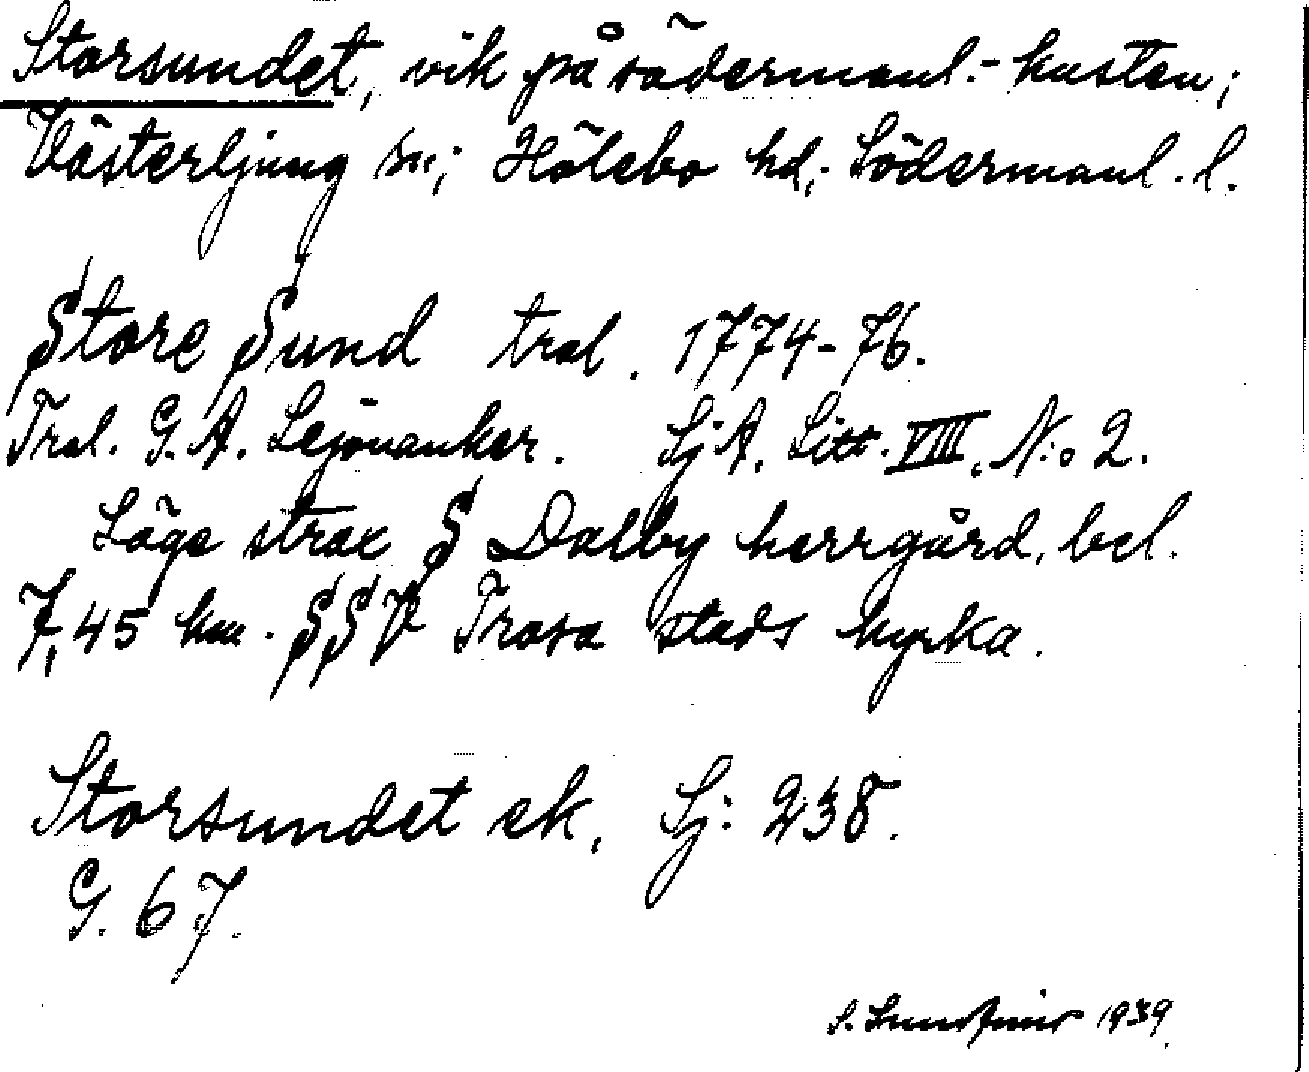 Storsundet, vik på södermanl.-kusten;
Västerljung sn; Hölebo hd; Södermanl. l.
Store Sund tral. 1774-76.
Tral. G. A. Lejonanker. Sj A. Litt. VIII. N:o 2.
Läge strax S Dalby herrgård, bel.
7,45 km. SSV Trosa stads kyrka.
Storsundet ek. Sj: 238.
G. 67.
S. 1939.